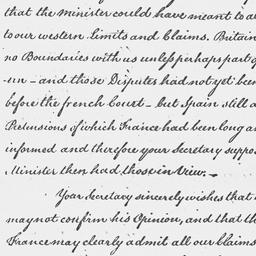 that the Minister could have meant to a
to our western Limits and Claims. Britain
no Boundaries with us unless perhaps part of
un - and those Disputes had not yet been
before the french Court - but Spain still a
Pretensions of which France had been long an
informed and therefore your Secretary suppos
Minister then had those in View. -
Your Secretary sincerely wishes that
may not confirm his Opinion, and that th
France may clearly admit all our Claims